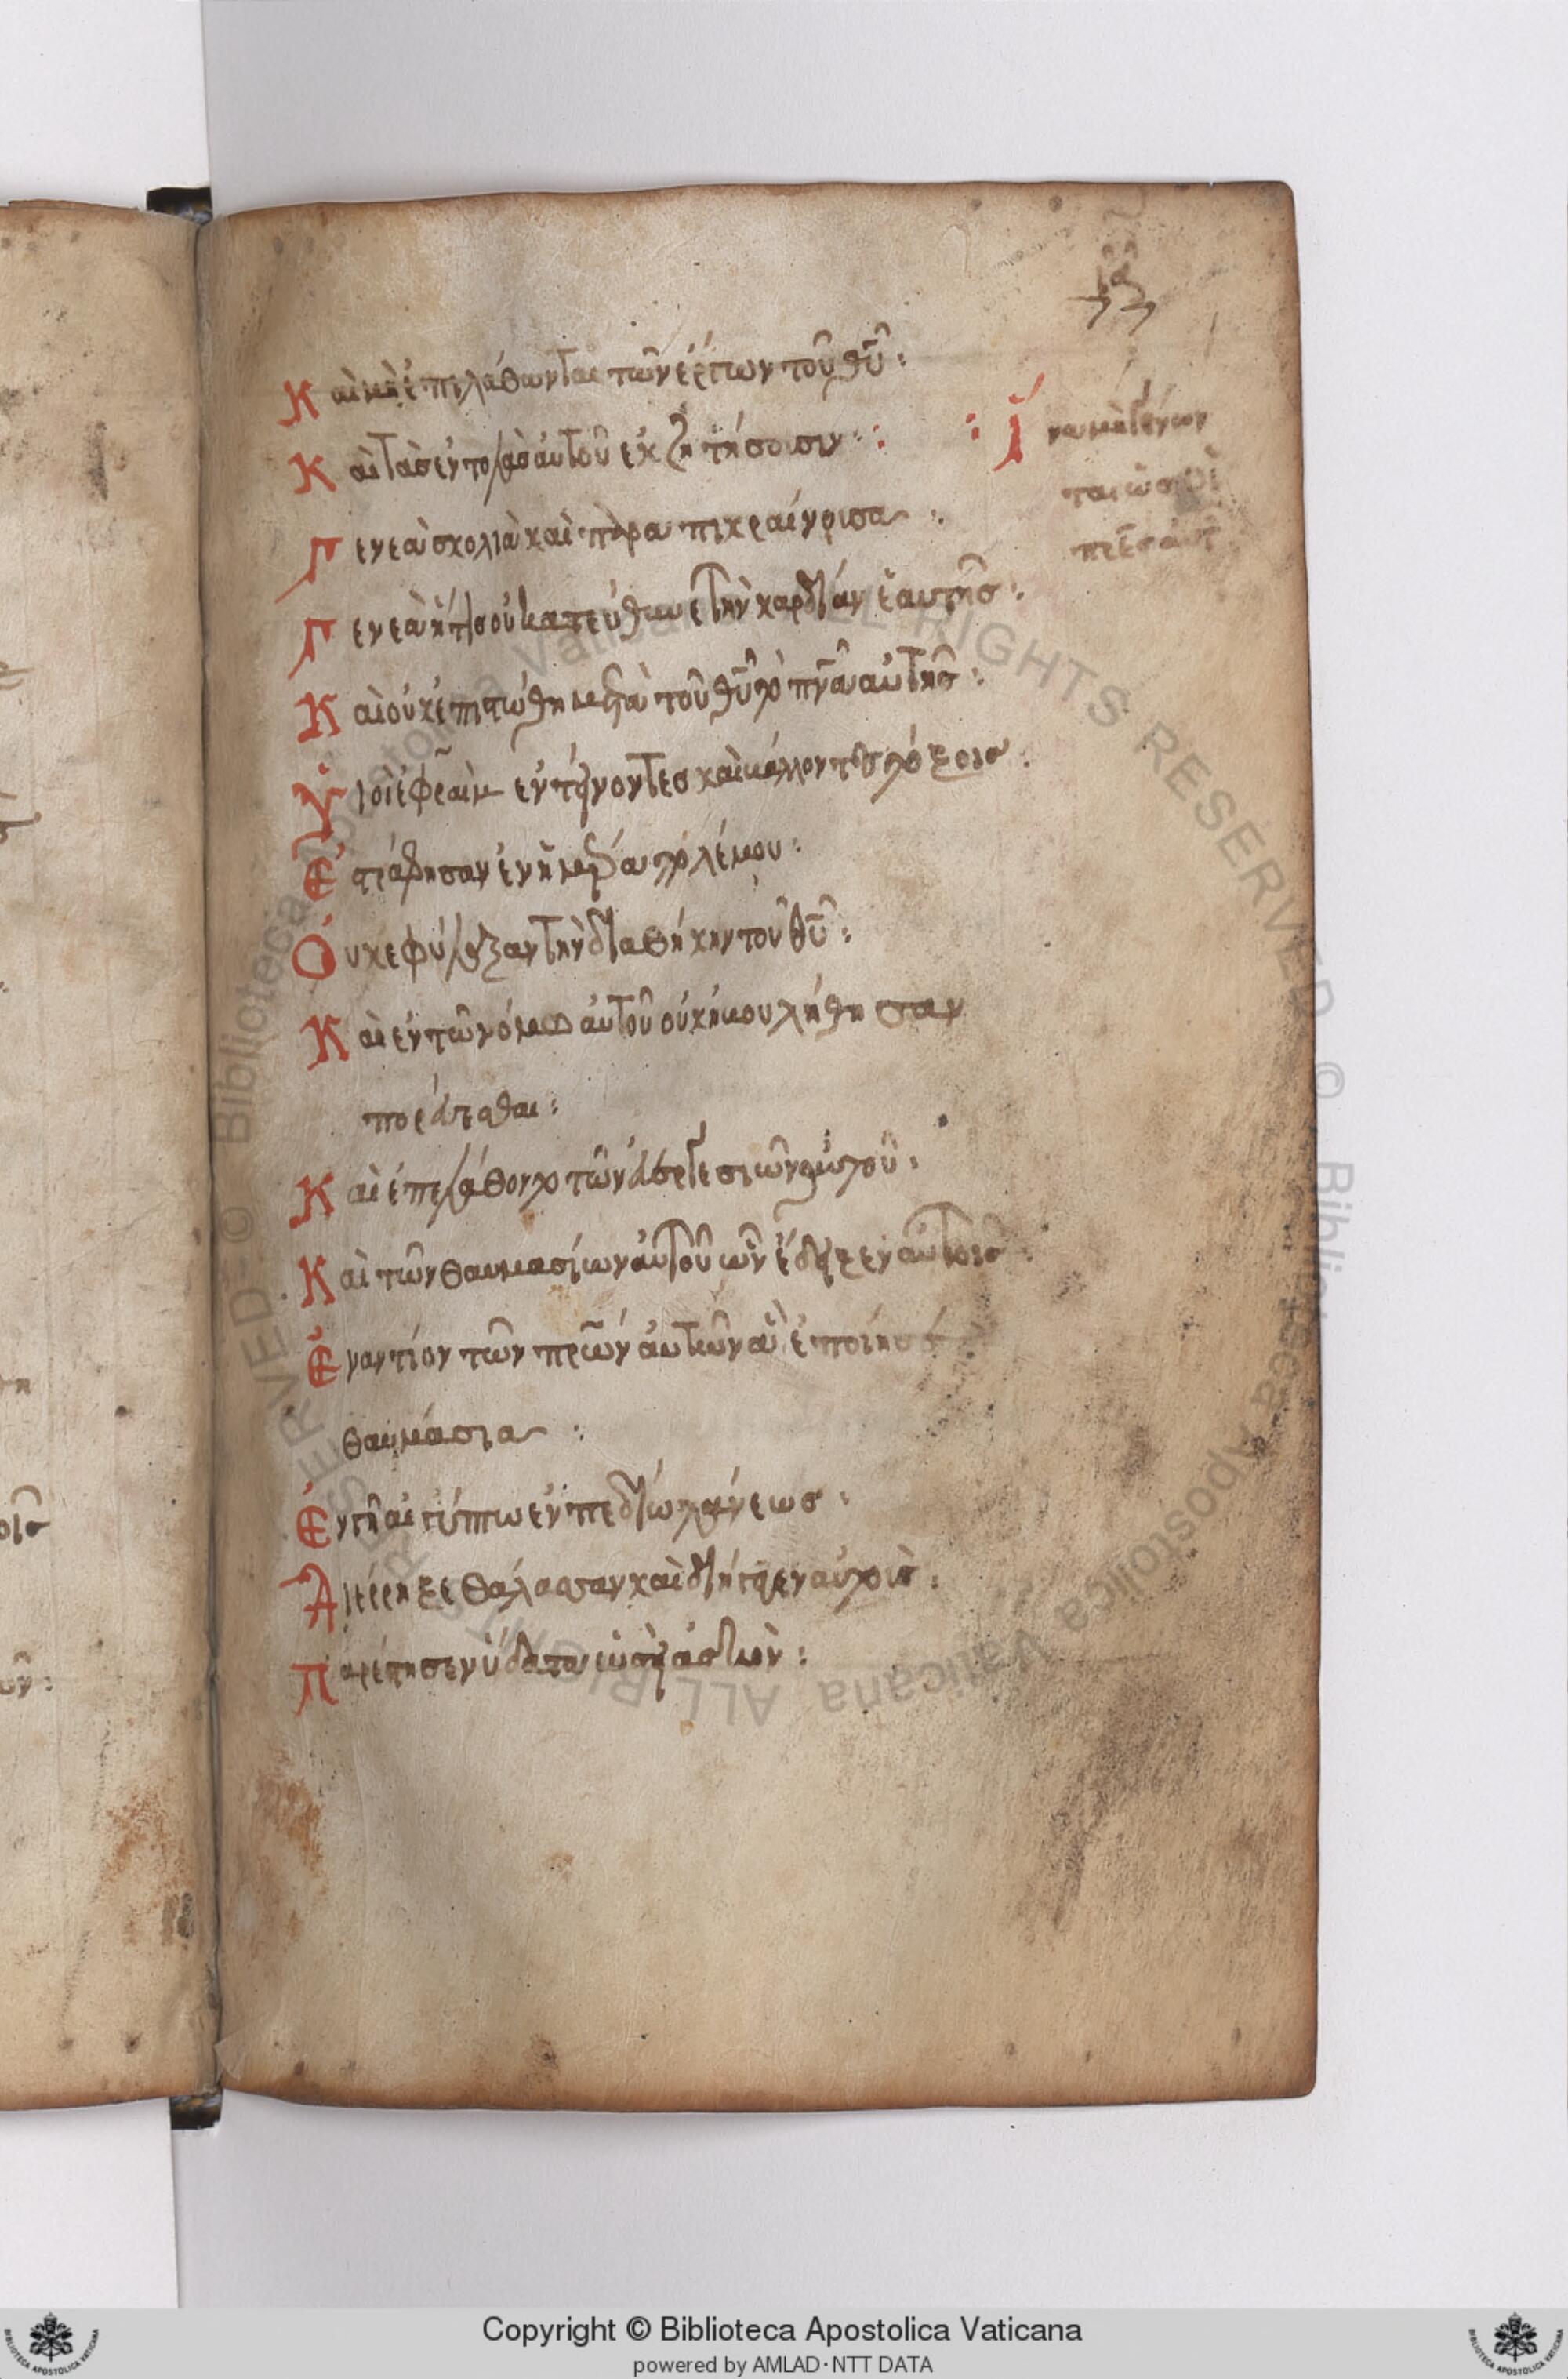 Καὶ μὴ ἐπιλάθωνται τῶν ἔργων τοῦ θ̅υ̅:
Καὶ τὰς ἐντολὰς αὐτοῦ ἐκζητήσουσιν:
Ἵνα μὴ γένων
ται ὡς οἱ
πρ̅ε̅ς αὐτ
Γενεὰ σκολιὰ καὶ παραπικραίνουσα:
Γενεὰ ἥτις οὐ κατεύθυνε τὴν καρδίαν ἑαυτῆς:
Καὶ οὐκ ἐπιστώθη μετὰ τοῦ θ̅υ̅ τὸ πν̅α̅ αὐτῆς:
Υἱοὶ ἐφραὶμ ἐντείνοντες καὶ βάλλοντες τόξοις:
Ἐστράφησαν ἐν ἡμέρα πολέμου:
Οὐκ ἐφύλαξαν τὴν διαθήκην τοῦ θ̅υ̅:
Καὶ ἐν τῶ νόμω αὐτοῦ οὐκ ἠβουλήθησαν
πορεύεσθαι:
Καὶ ἐπελάθοντο τῶν εὐεργεσιῶν αὐτοῦ:
Καὶ τῶν θαυμασίων αὐτοῦ ὧν ἔδειξεν αὐτοῖς:
Ἐναντίον τῶν πρ̅ω̅ν αὐτῶν ἃ ἐποίησε
θαυμάσια:
Ἐν γῆ αἰγύπτω ἐν πεδίω τάνεως:
Διέρηξε θάλασσαν καὶ διήγαγεν αὐτοὺς:
Παρέστησεν ὕδατα ὡσεὶ ἀσκὸν:
Copyright © Biblioteca Apostolica Vaticana
powered by AMLAD·NTT DATA